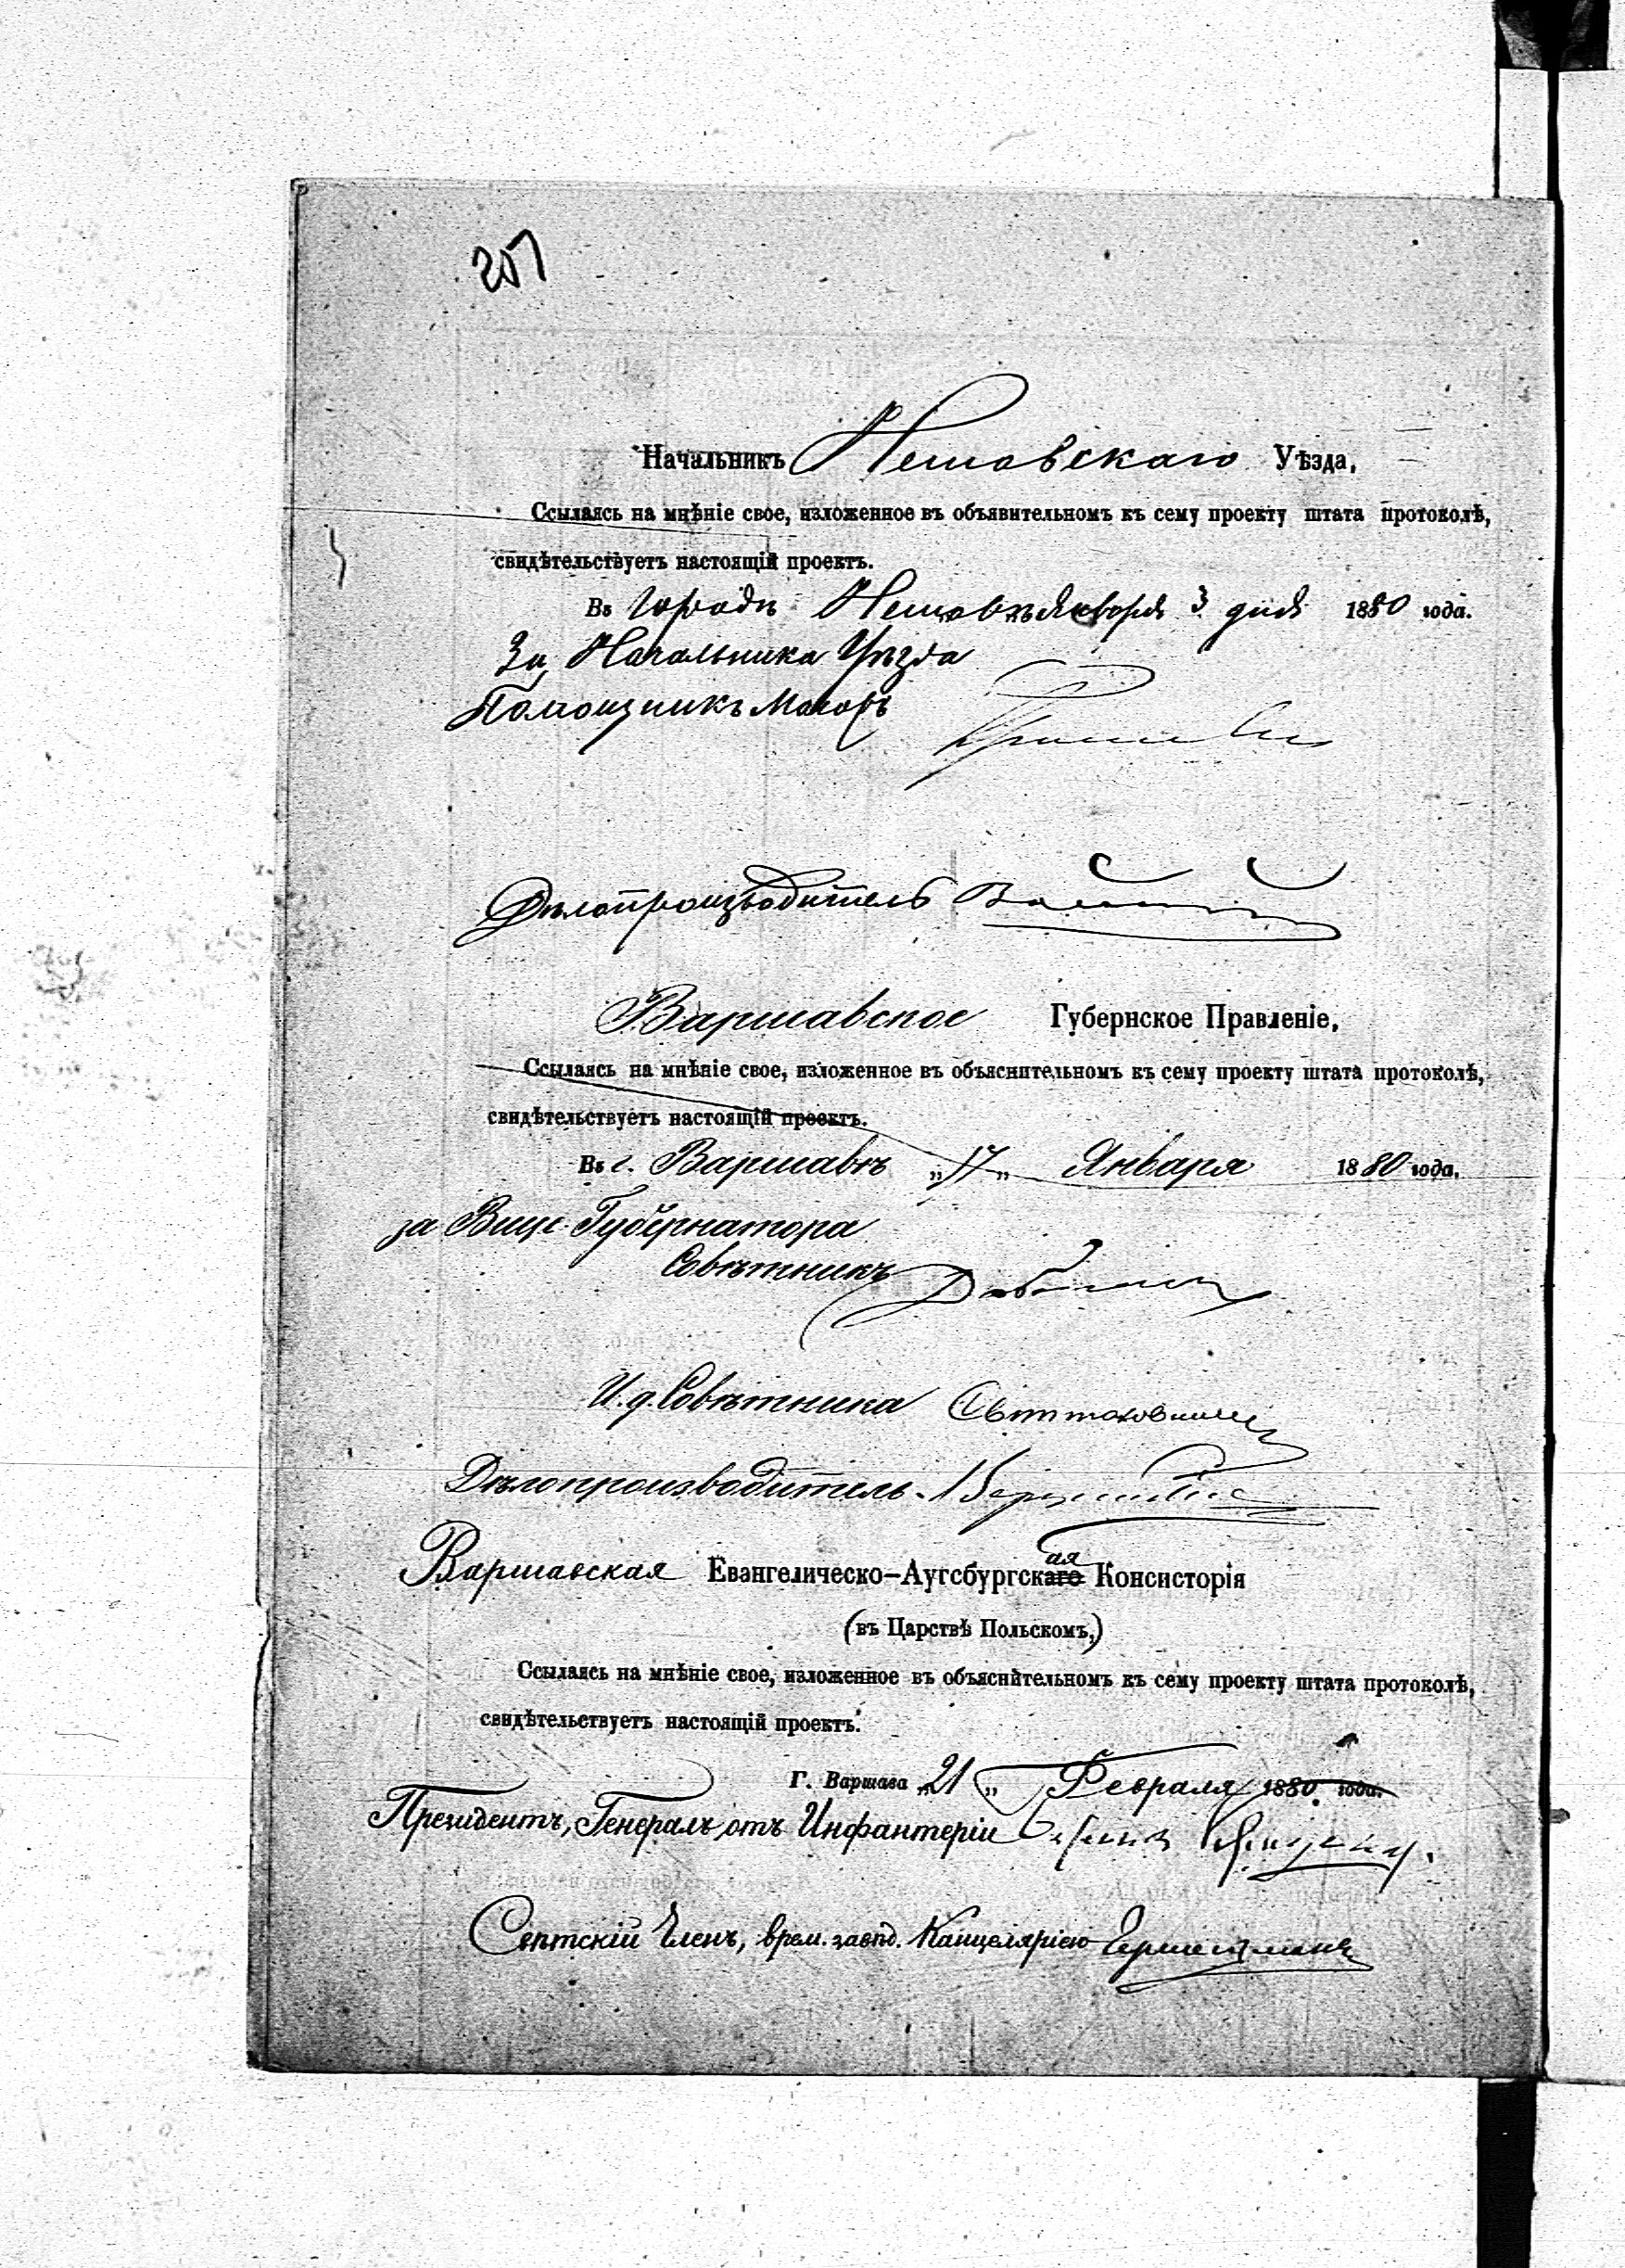 207
Начальникъ Нешавскаго Уѣзда,
Ссылаясь на мнѣніе свое, изложенное въ объявительномъ къ сему проекту штата протоколѣ,
свидѣтельствуетъ настоящій проектъ.
Въ городѣ Нешавѣ Января 3 дня 1880 года.
За Начальника Уѣзда
Помощникъ Маіоръ
Дѣлопроизводитель
Варшавское Губернское Правленіе,
Ссылаясь на мнѣніе свое, изложенное въ объяснительномъ къ сему проекту штата протоколѣ,
свидѣтельствуетъ настоящій проектъ.
Въ г. Варшавѣ „17„ Января 1880 года.
за Вице-Губернатора
Совѣтникъ
И. д. Совѣтника
Дѣлопроизводитель
Варшавская Евангелическо-Аугсбургскаго ая Консисторія
(въ Царствѣ Польскомъ,)
Ссылаясь на мнѣніе свое, изложенное въ объяснительномъ къ сему проекту штата протоколѣ,
свидѣтельствуетъ настоящій проектъ.
Г. Варшава „21„ Февраля 1880 года.
Президентъ, Генералъ отъ Инфантеріи
Свѣтскій Членъ, врем. завѣд. Канцеляріею